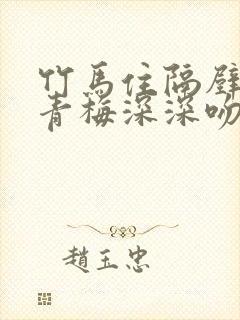 竹馬住隔壁
青梅深深吻
趙玉忠